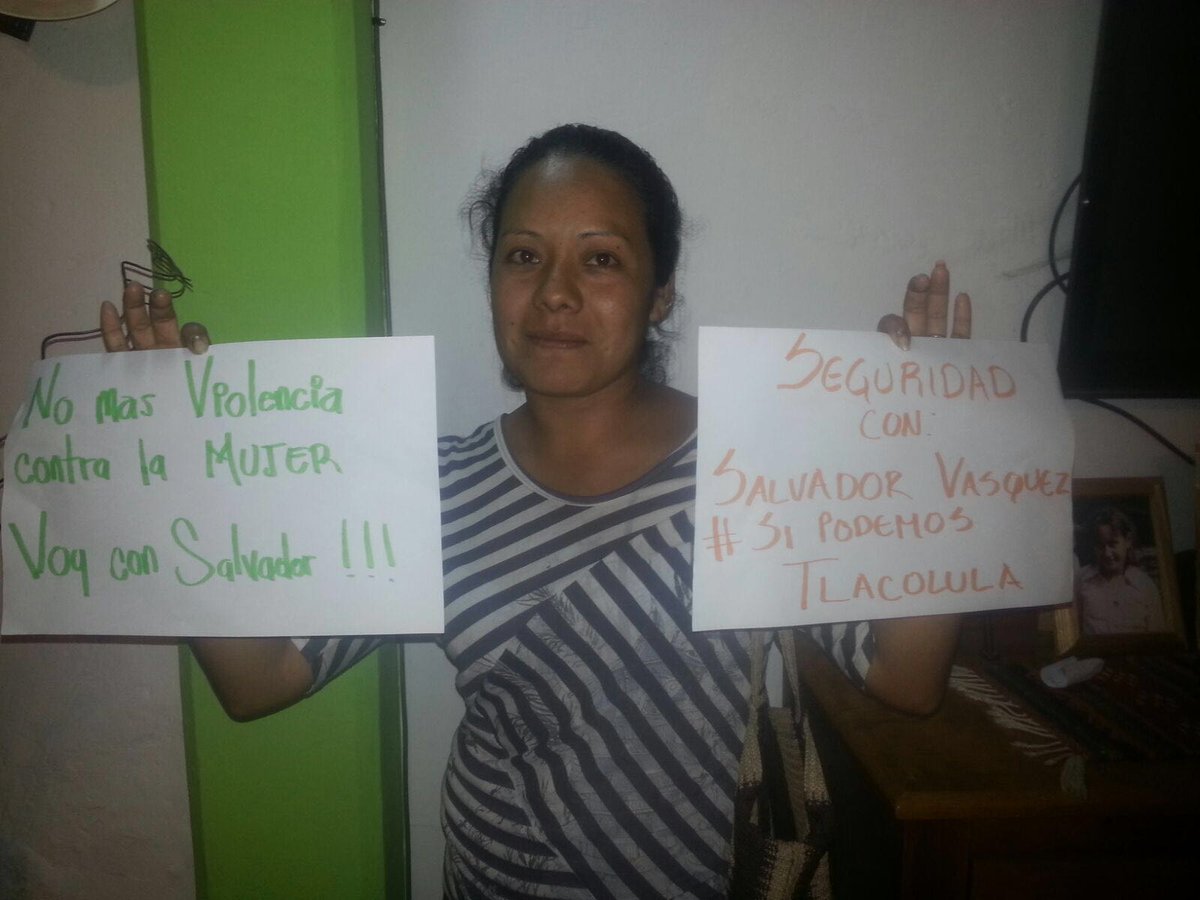 No mas Violencia
contra la MUJER
Voy con Salvador !!!
SEGURIDAD
CON:
SALVADOR VASQUEZ
# SI PODEMOS
TLACOLULA